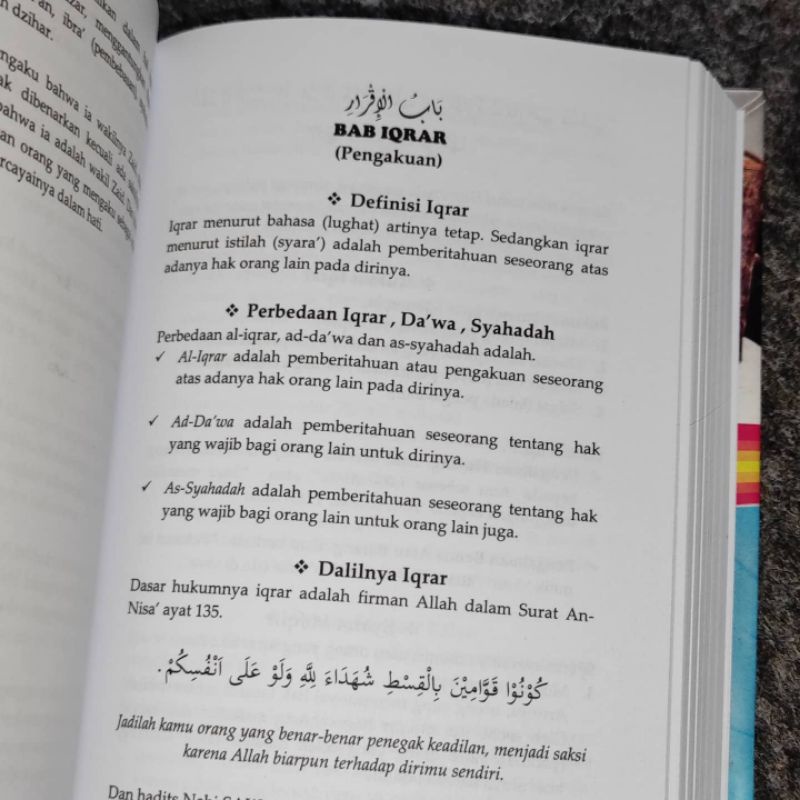 dalam
menggantungkan
ibra' (pembebasan)
dzihar.
mengaku bahwa ia wakilnya Zaid
dibenarkan kecuali ada
bahwa ia adalah wakil Zaid
orang yang mengaku sebagai
dalam hati.
بَابُ الْإِقْرَارِ
BAB IQRAR
(Pengakuan)
❖ Definisi Iqrar
Iqrar menurut bahasa (lughat) artinya tetap. Sedangkan iqrar
menurut istilah (syara') adalah pemberitahuan seseorang atas
adanya hak orang lain pada dirinya.
❖ Perbedaan Iqrar , Da'wa , Syahadah
Perbedaan al-iqrar, ad-da'wa dan as-syahadah adalah.
✓ Al-Iqrar adalah pemberitahuan atau pengakuan seseorang
atas adanya hak orang lain pada dirinya.
✓ Ad-Da'wa adalah pemberitahuan seseorang tentang hak
yang wajib bagi orang lain untuk dirinya.
✓ As-Syahadah adalah pemberitahuan seseorang tentang hak
yang wajib bagi orang lain untuk orang lain juga.
❖ Dalilnya Iqrar
Dasar hukumnya iqrar adalah firman Allah dalam Surat An-
Nisa' ayat 135.
كُوْنُوْا قَوَّامِيْنَ بِالْقِسْطِ شُهَدَاءَ لِلّٰهِ وَلَوْ عَلَى اَنْفُسِكُمْ.
Jadilah kamu orang yang benar-benar penegak keadilan, menjadi saksi
karena Allah biarpun terhadap dirimu sendiri.
Dan hadits Nabi